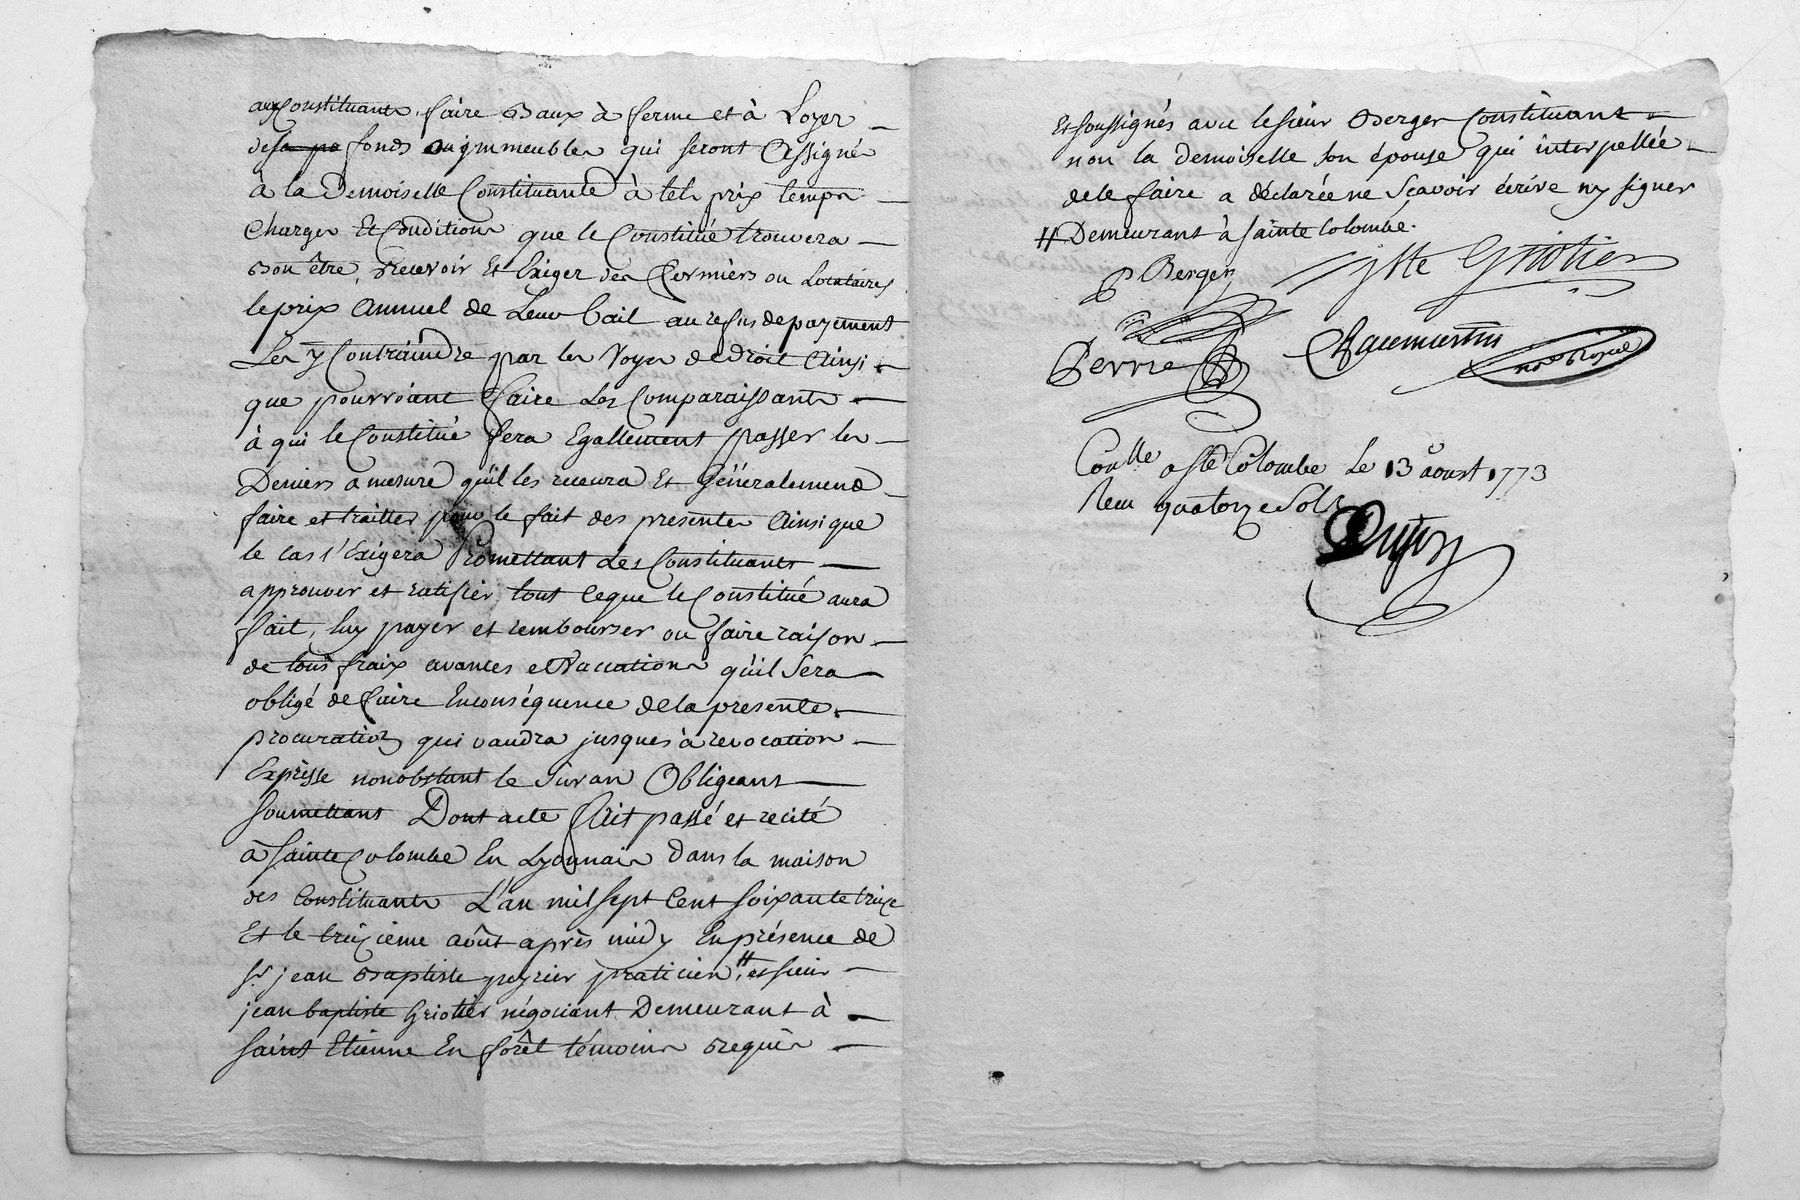 aux Constituants, faire Baux à ferme et à Loyer
des fonds ou immeubles qui seront Assignés
à la Demoiselle Constituante à tels prix temps
Charges Et Conditions que le Constitué trouvera
Bon être, Recevoir Et Exiger des Fermiers ou Locataires
le prix Annuel de Leur bail au refus de payement
Les y Contraindre par les Voyes de droit Ainsi
que pourroient faire Les Comparaissants
à qui le Constitué fera Egallement passer les
Deniers a mesure qu'il les recevra Et Généralement
faire et traitter pour le fait des presentes Ainsi que
le cas l'Exigera Promettant Les Constituants
approuver et ratifier tout Ceque le Constitué aura
fait, luy payer et rembourser ou faire raison
de tous fraix avances et Vaccations qu'il Sera
obligé de faire Enconséquence dela presente
procuration qui vaudra jusques à revocation
Expresse nonobstant le Suran Obligeant
soumettant Dont acte fait passé et recité
à Sainte Colombe En Lyonnais Dans la maison
des Constituants L'an mil sept Cent soixante treize
Et le treizième août après midy En présence de
Sr. jean Baptiste peyrier praticien, # et sieur
jean baptiste Griotier négociant Demeurant à
saint Etienne En forêt témoins Requis
Et soussignés avec le sieur Berger Constituant
non la demoiselle son épouse qui interpellée
de le faire a déclarée ne Sçavoir écrire ny signer
# Demeurant à Sainte Colombe.
P Berger
jBte Griotier
Nore Royal
Conlle a Ste Colombe Le 13 aoust 1773
Receu quatorze Sols